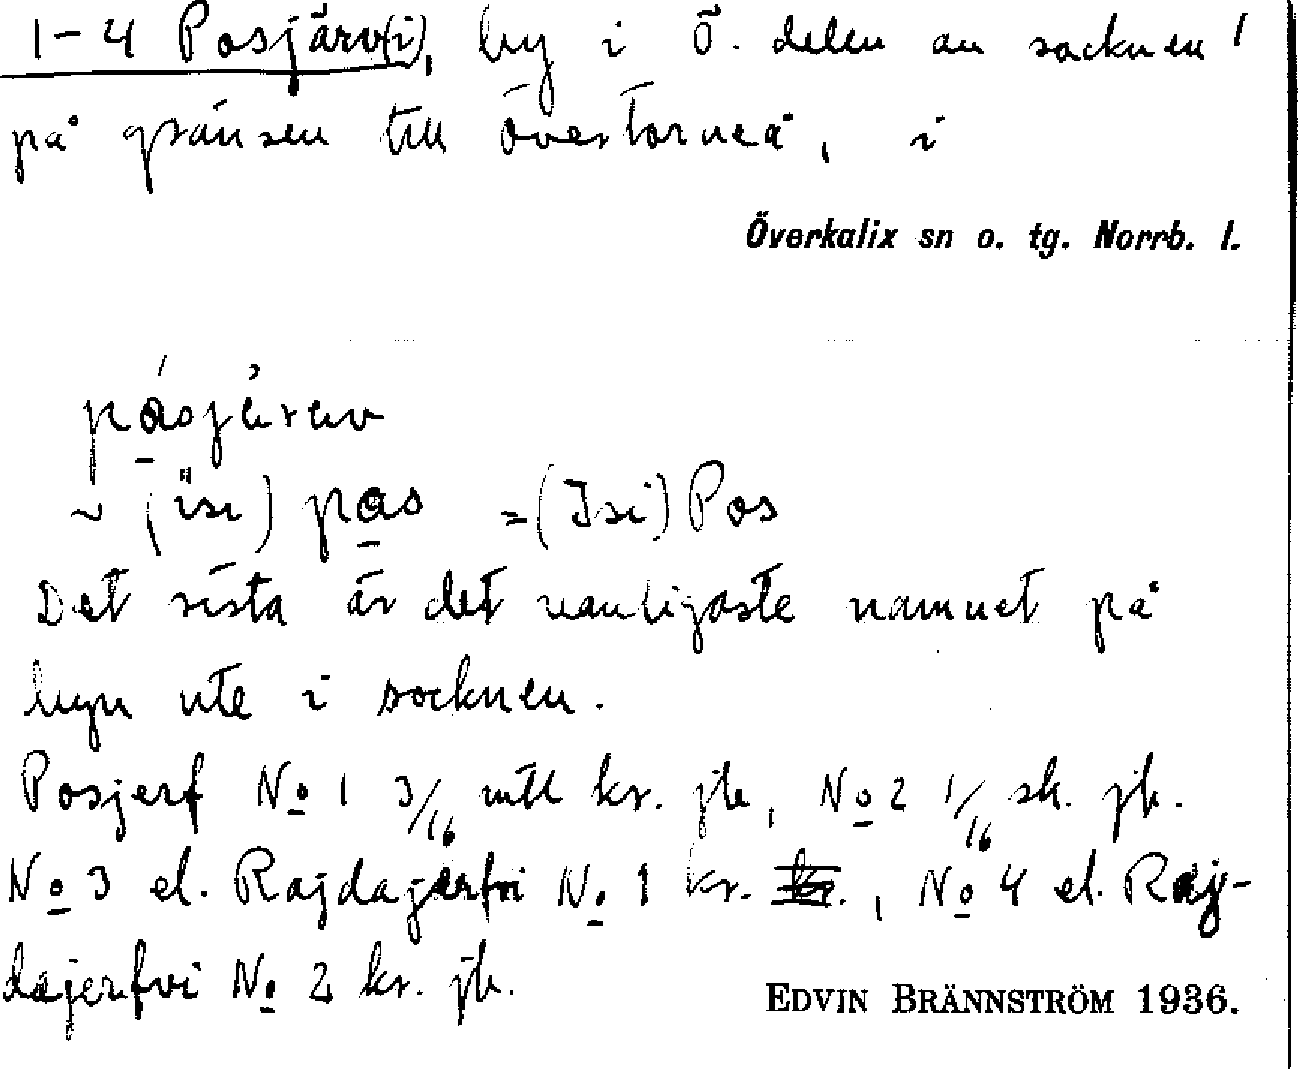 1-4 Posjärv(i), by i Ö. delen av socknen
på gränsen till Övertorneå, i
Överkalix sn o. tg. Norrb. l.
påsjärav
~ (isi) pas = (Isi) Pos
Det sista är det vanligaste namnet på
byn ute i socknen.
Posjerf No 1 3/16 mtl kr. jb, No 2 1/16 sk. jb.
No 3 el. Rajdajärfvi No 1 kr. , No 4 el. Raj-
dajerfvi No 2 kr. jb.
EDVIN BRÄNNSTRÖM 1936.